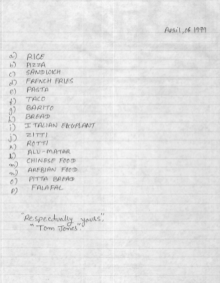 April, of 1999
a) RICE
b) PIZZA
c) SANDWICH
d) FRENCH FRIES
e) PASTA
f) TACO
g) BARITO
h) BREAD
i) ITALIAN EGGPLANT
j) ZITTI
k) ROTTI
l) ALU-MATAR
m) CHINESE FOOD
n) ARABIAN FOOD
o) PITTA BREAD
p) FALAFAL
"Respectfully yours",
"Tom Jones"